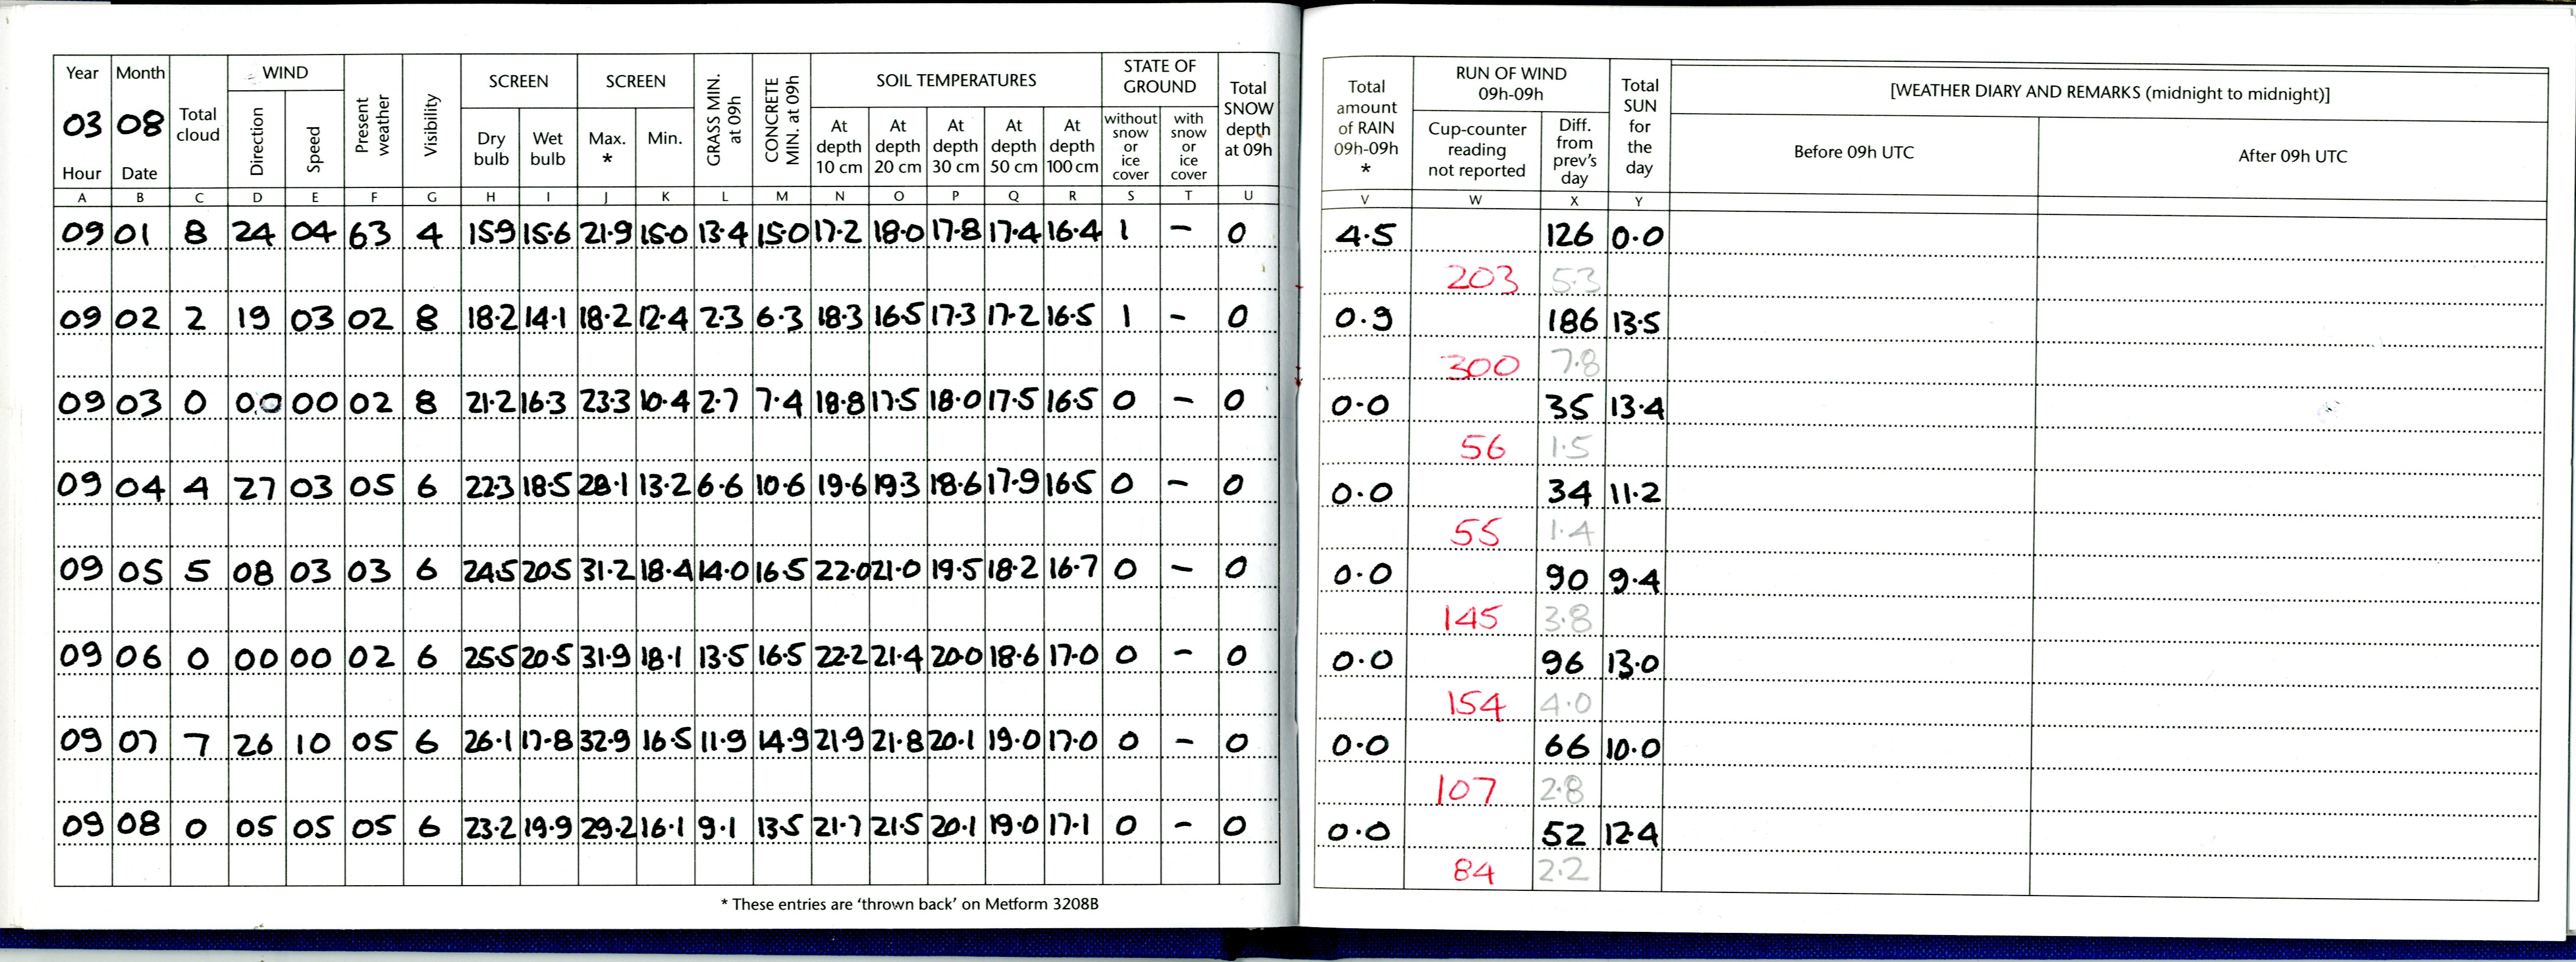 Year Month Total cloud WIND Present weather Visibility SCREEN SCREEN GRASS MIN. at 09h CONCRETE MIN. at 09h SOIL TEMPERATURES STATE OF GROUND Total SNOW depth at 09h Total amount of RAIN 09h-09h * RUN OF WIND 09h-09h Total SUN for the day [WEATHER DIARY AND REMARKS (midnight to midnight)]
03 08 Direction Speed Dry bulb Wet bulb Max. * Min. At depth 10 cm At depth 20 cm At depth 30 cm At depth 50 cm At depth 100 cm without snow or ice cover with snow or ice cover Cup-counter reading not reported Diff. from prev's day Before 09h UTC After 09h UTC
Hour Date
A B C D E F G H I J K L M N O P Q R S T U V W X Y
09 01 8 24 04 63 4 159 15·6 21·9 15·0 13·4 15·0 17·2 18·0 17·8 17·4 16·4 1 - 0 4·5 126 0·0
203 5·3
09 02 2 19 03 02 8 18·2 14·1 18·2 12·4 2·3 6·3 18·3 16·5 17·3 17·2 16·5 1 - 0 0·9 186 13·5
300 7·8
09 03 0 00 00 02 8 21·2 16·3 23·3 10·4 2·7 7·4 18·8 17·5 18·0 17·5 16·5 0 - 0 0·0 35 13·4
56 1·5
09 04 4 27 03 05 6 22·3 18·5 28·1 13·2 6·6 10·6 19·6 19·3 18·6 17·9 16·5 0 - 0 0·0 34 11·2
55 1·4
09 05 5 08 03 03 6 24·5 20·5 31·2 18·4 14·0 16·5 22·0 21·0 19·5 18·2 16·7 0 - 0 0·0 90 9·4
145 3·8
09 06 0 00 00 02 6 25·5 20·5 31·9 18·1 13·5 16·5 22·2 21·4 20·0 18·6 17·0 0 - 0 0·0 96 13·0
154 4·0
09 07 7 26 10 05 6 26·1 17·8 32·9 16·5 11·9 14·9 21·9 21·8 20·1 19·0 17·0 0 - 0 0·0 66 10·0
107 2·8
09 08 0 05 05 05 6 23·2 19·9 29·2 16·1 9·1 13·5 21·7 21·5 20·1 19·0 17·1 0 - 0 0·0 52 12·4
84 2·2
* These entries are 'thrown back' on Metform 3208B